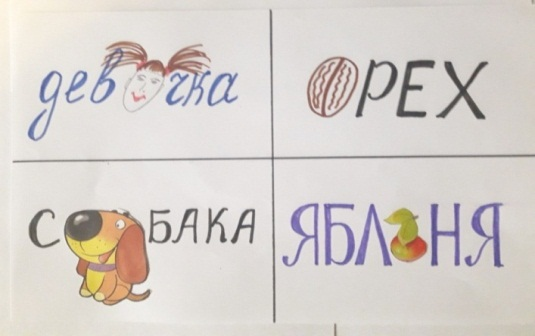 девочка
ОРЕХ
СОБАКА
ЯБЛОНЯ